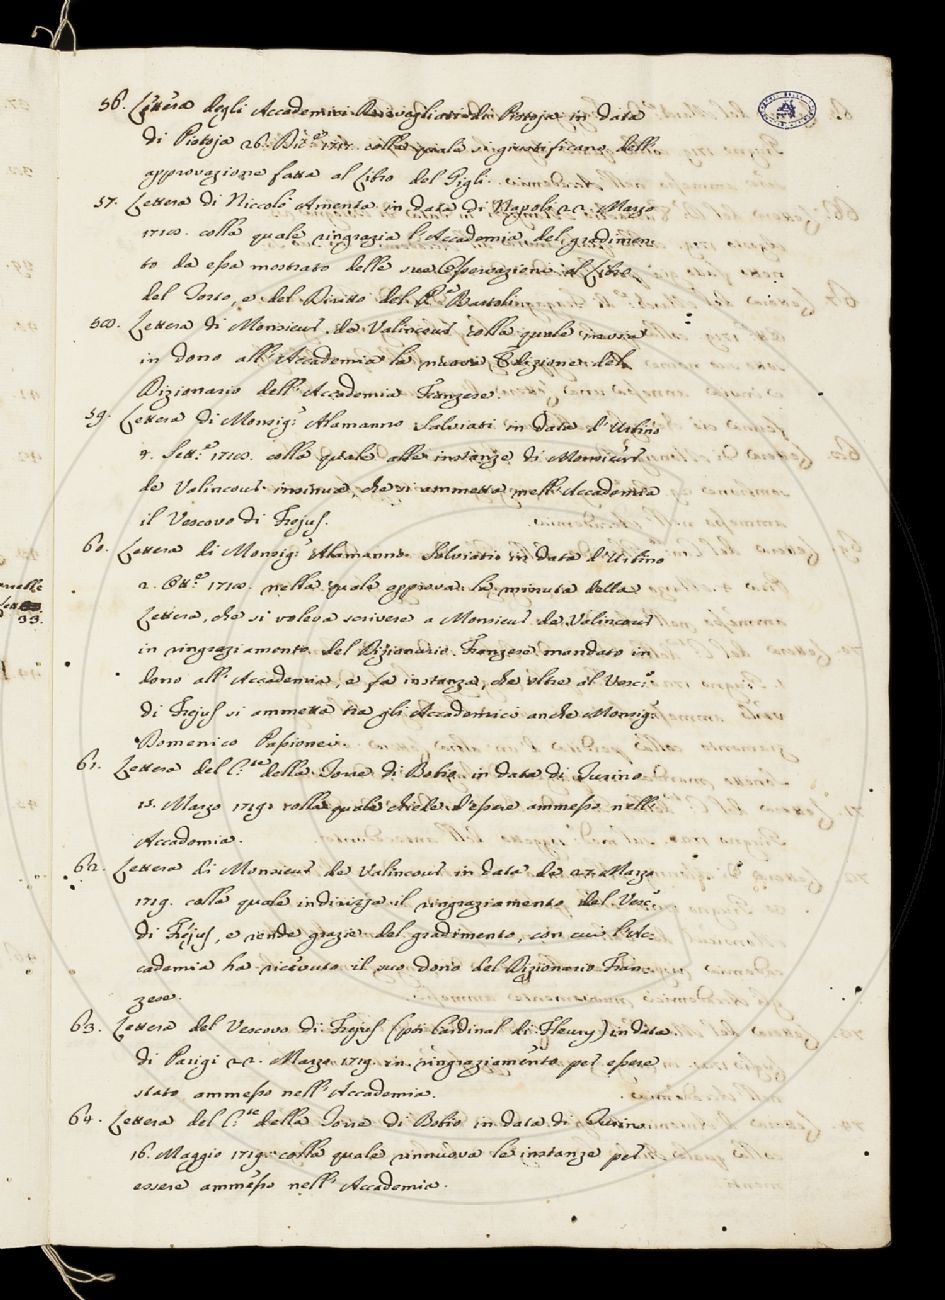 56. Lettera degli Accademici Risvegliati di Pistoja in data
di Pistoja 26. Dic.e 1717. colla quale si giustificano dell'
approvazione fatta al Libro del Gigli.
57. Lettera di Niccolò Amenta in data di Napoli 22. Marzo
1718. colla quale ringrazia l'Accademia del gradimen:
to da essa mostrato delle sue Osservazioni al Libro
del Torto, e del Diritto del P.e Bartoli.
58. Lettera di Monsieur de Valincour colla quale invia
in dono all'Accademia la nuova Edizione del
Dizionario dell'Accademia Franzese.
59. Lettera di Monsig.r Alamanno Salviati in data d'Urbino
4. Sett.e 1718. colla quale alle instanze di Monsieur
de Valincour insinua, che si ammetta nell'Accademia
il Vescovo di Frejus.
60. Lettera di Monsig.r Alamanno Salviati in data d'Urbino
2. Ott.e 1718. nella quale approva la minuta della
Lettera, che si voleva scrivere a Monsieur de Valincour
in ringraziamento del Dizionario Franzese mandato in
dono all'Accademia, e fa instanza, che oltre al Vesc.o
di Frejus si ammetta tra gli Accademici anche Monsig.r
Domenico Passionei.
61. Lettera del C.te della Torre di Bobio in data di Turino
15. Marzo 1719. colla quale chiede d'essere ammesso nell'
Accademia.
62. Lettera di Monsieur de Valincour in data de 27. Marzo
1719. colla quale indirizza il ringraziamento del Vesc.o
di Frejus, e rende grazie del gradimento, con cui l'Ac:
cademia ha ricevuto il suo dono del Dizionario Fran:
zese.
63. Lettera del Vescovo di Frejus (poi Cardinal di Fleury) in data
di Parigi 22. Marzo 1719. in ringraziamento per essere
stato ammesso nell'Accademia.
64. Lettera del C.te della Torre di Bobio in data di Turino
16. Maggio 1719. colla quale rinnuova le instanze per
essere ammesso nell'Accademia.